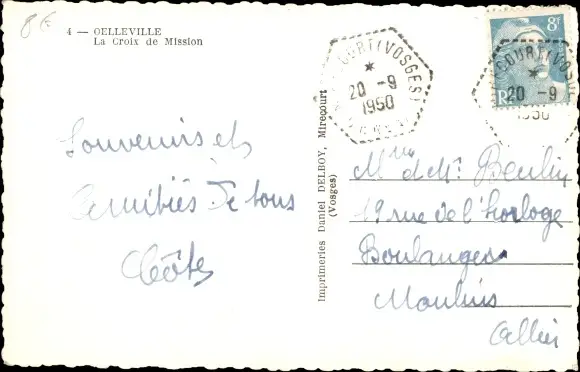 8€
4 — OELLEVILLE
La Croix de Mission
COURT (VOSGES)
20 -9
1950
8F
COURT (VOSGES)
20 -9
1950
Souvenirs et
Amitiés de tous
Côte
Imprimeries Daniel DELBOY, Mirecourt
(Vosges)
Mme & Mr
19 rue de l'Horloge
Boulanger
Moulins
Allier